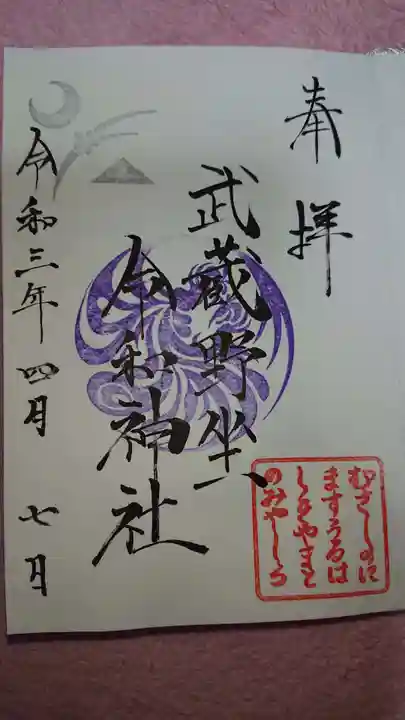 奉拝
武蔵野坐
令和神社
令和三年四月七日
むさしのに
ますうるは
しきやまと
のみやしろ